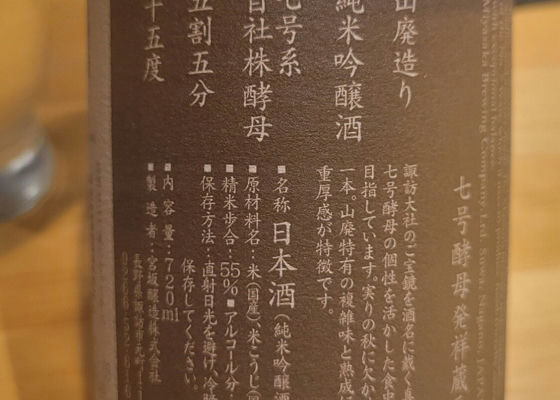 Miyasaka Brewing Company Ltd. Suwa, Nagano JAPAN
七号酵母発祥蔵
山廃造り
純米吟醸酒
七号系
自社株酵母
五割五分
十五度
諏訪大社のご宝鏡を酒名に戴く真
七号酵母の個性を活かした食中
目指しています。実りの秋に欠か
一本。山廃特有の複雑味と熟成に
重厚感が特徴です。
■名称 日本酒(純米吟醸酒
■原材料名:米(国産)、米こうじ(国
■精米歩合:55% ■アルコール分:
■保存方法:直射日光を避け、冷暗
保存してください。
■内容量:720ml
■製造者:宮坂醸造株式会社
長野県諏訪市元町1-1